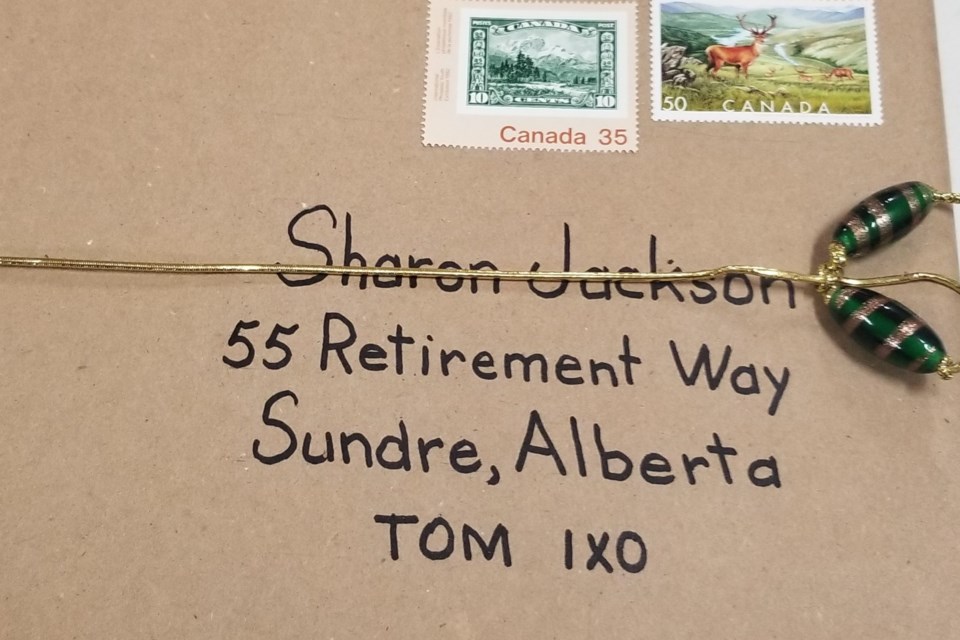 CANADA
10 CENTS 10
Canada 35
50 CANADA
Sharon Jackson
55 Retirement Way
Sundre, Alberta
TOM 1X0